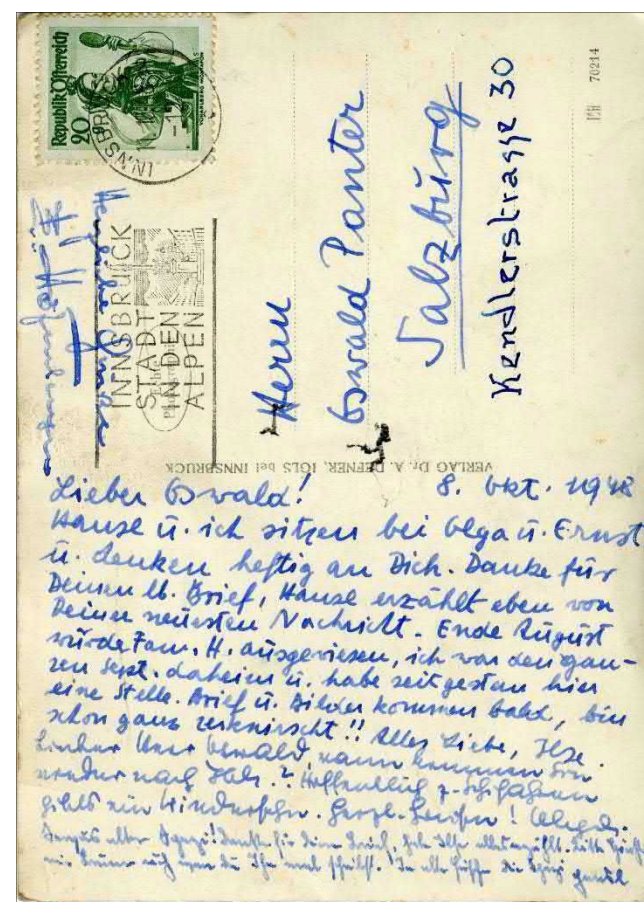 Republik Österreich
20
INNSBRUCK
INNSBRUCK
STADT
IN DEN
ALPEN
Herzliche Grüße
Herrn
Oswald Panter
Salzburg
Kendlerstrasse 30
70214
VERLAG Dr. A. DEFNER, IGLS bei INNSBRUCK
Lieber Oswald! 8. Okt. 1948
Hansl u. ich sitzen bei Olga u. Ernst
u. denken heftig an Dich. Danke für
Deinen lb. Brief, Hansl erzählt eben von
Deiner neuesten Nachricht. Ende August
wurde Fam. H. ausgewiesen, ich war den gan-
zen Sept. daheim u. habe seit gestern hier
eine Stelle. Brief u. Bilder kommen bald, bin
schon ganz zerknirscht!! Alles Liebe, Ilse.
Lieber Herr Oswald, wann kommen Sie
wieder nach Hall? Hoffentlich z. Schifahren
gibts ein Wiedersehn. Herzl.
alter
danke für Dein Brief, hab Ilse alles erzählt. Bitte
mir immer auch wenn du Ihr mal schreibst.